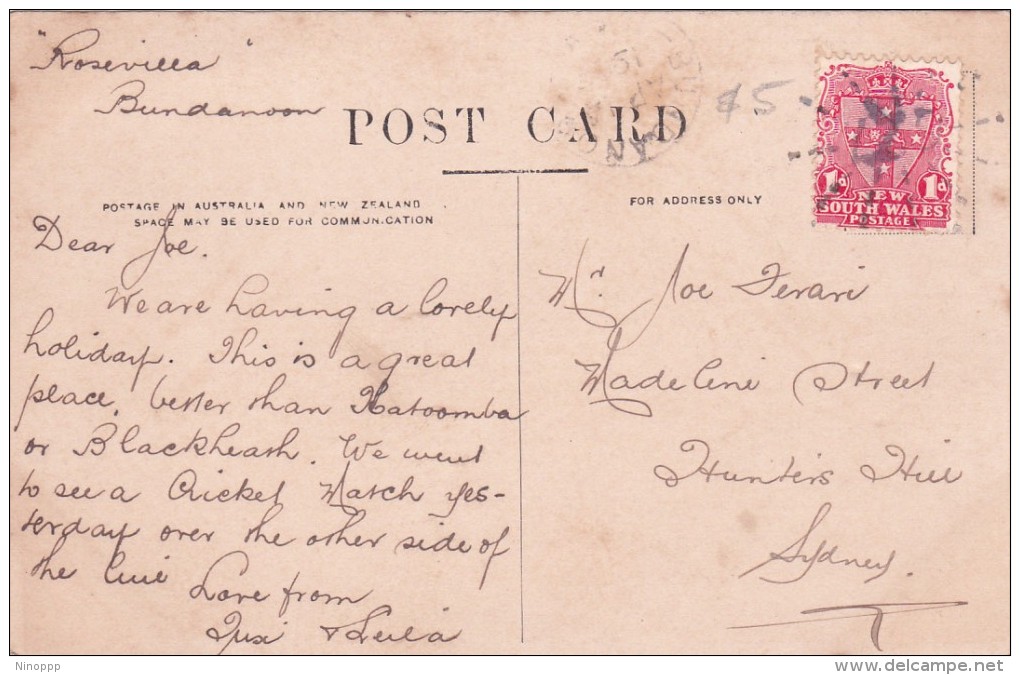 "Rosevilla"
Bundanoon
POST CARD
$5
POSTAGE IN AUSTRALIA AND NEW ZEALAND
SPACE MAY BE USED FOR COMMUNICATION
FOR ADDRESS ONLY
1d 1d
NEW
SOUTH WALES
POSTAGE
Dear Joe.
We are having a lovely
holiday. This is a great
place, better than Katoomba
or Blackheath. We went
to see a Cricket Match yes-
terday over the other side of
the line
Love from
& Leila
Mr. Joe Ferari
Madeline Street
Hunters Hill
Sydney.
Ninoppp
delcampe.net